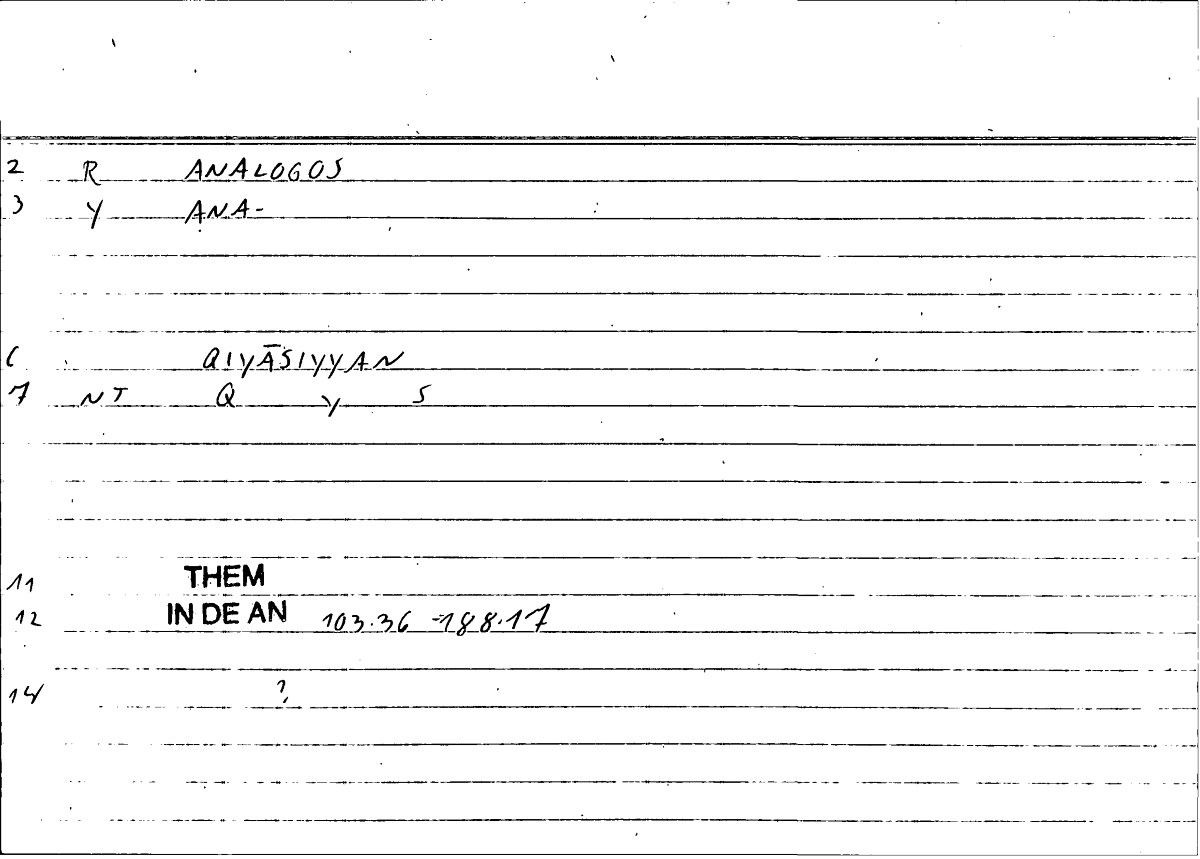 2 R ANALOGOS
3 Y ANA-
6 QIYĀSIYYAN
7 NT Q Y S
11 THEM
12 IN DE AN 103.36 -188.17
14 ?